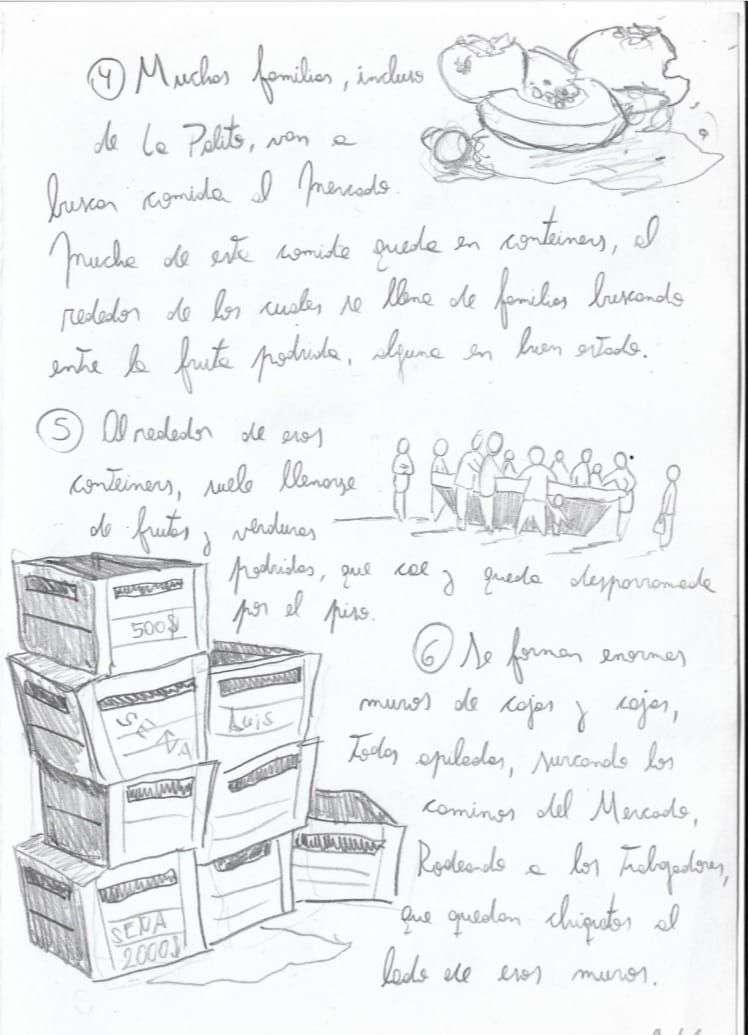 ④ Muchas familias, incluso
de La Palito, van a
buscar comida al Mercado.
Mucha de esta comida queda en conteiners, al
rededor de los cuales se llena de familias buscando
entre la fruta podrida, alguna en buen estado.
⑤ Alrededor de esos
conteiners, suele llenarse
de frutas y verduras
podridas, que cae y queda desparramada
por el piso.
500$
SEÑA
Luis
SEÑA
2000$
⑥ Se forman enormes
muros de cajas y cajas,
Todas apiladas, surcando los
caminos del Mercado,
Rodeando a los Trabajadores,
que quedan chiquitos al
lado de esos muros.